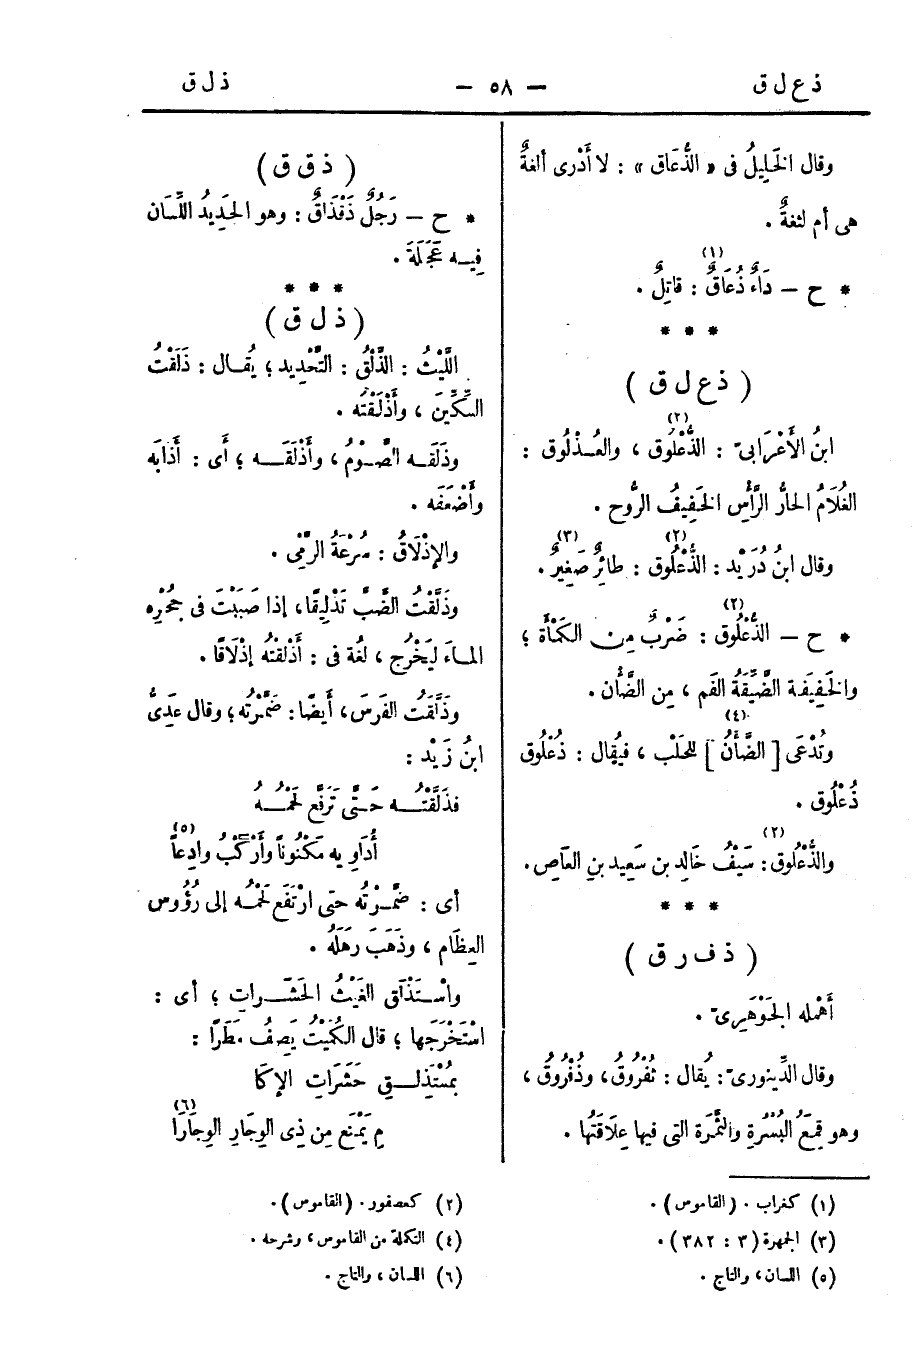 ذ ع ل ق — ٥٨ — ذ ل ق
وقال الخَلِيلُ فى « الذُّعَاق » : لا أَدْرى ألغةٌ
هى أم لثغةٌ .
* ح — دَاءٌ ذُعَاقٌ (١) : قاتِلٌ .
* * *
( ذ ع ل ق )
ابنُ الأَعْرَابىّ : الذُّعْلُوق (٢) ، والعُـذْلُوق :
الغُلَامُ الحارُّ الرَّأْسِ الخَفِيفُ الرُّوح .
وقال ابنُ دُرَيْد : الذُّعْلُوق (٢) : طائِرٌ صَغِيرٌ (٣) .
* ح — الذُّعْلُوق (٢) : ضَرْبٌ مِن الكَمْأَة ؛
والخَفِيفَة الضَّيِّقَةُ الفَم ، مِن الضَّأْن .
وتُدْعَى [ الضَّأْنُ ] (٤) للحَلْب ، فيُقال : ذُعْلُوق
ذُعْلُوق .
والذُّعْلُوق (٢) : سَيْفُ خَالِد بن سَعِيد بنِ العَاصِ .
* * *
( ذ ف ر ق )
أَهْمله الجَوْهَرِىّ .
وقال الدِّينورىّ : يُقال : ثُفْرُوقٌ ، وذُفْرُوقٌ ،
وهو قِمَعُ البُسْرَةِ والتَّمْرَة التى فيها عِلَاقَتُها .
( ذ ق ق )
* ح — رَجُلٌ ذَقْذَاقٌ : وهو الحَدِيدُ اللِّسَان
فِيـه عَجَلَةٌ .
* * *
( ذ ل ق )
اللَّيْثُ : الذَّلْقُ : التَّحْدِيد ؛ يُقـال : ذَلَقْتُ
السِّكِّينَ ، وأَذْلَقْتُه .
وذَلَقَـه الصَّـوْمُ ، وأَذْلَقَـــه ؛ أى : أَذابَه
وأَضْعَفَه .
والإذْلَاقُ : سُرْعَةُ الرَّمْى .
وذَلَّقْتُ الضَّبَّ تَذْلِيقًا ، إذا صَبَبْتَ فى جُحْرِه
المـاءَ ليَخْرُج ، لغُة فى : أَذْلَقْتُه إذْلَاقًا .
وذَلَّقْتُ الفَرَسَ ، أَيضًا : ضَمَّرْتُه ؛ وقال عَدِىُّ
ابنُ زَيْد :
فذَلَّقْتُــه حَـتَّى تَرَفَّع لَحْمُــهُ
أُدَاوِيهِ مَكْنُوناً وأَرْكَبُ وادِعاً (٥)
أى : ضَمَّـرْتُه حتى ارْتَفَع لَحْمُـه إلى رُؤُوس
العِظَام ، وذَهَبَ رَهَلُه .
واسْـتَذْلَق الغَيْثُ الحَشَــراتِ ؛ أى :
اسْتَخْرَجَها ؛ قال الكُمَيْتُ يَصِفُ مَطَرًا :
بمُسْتَذْلِــقٍ حَشَراتِ الإكَا
مِ يَمْنَع مِن ذِى الوِجَارِ الوِجَارَا (٦)
(١) كغراب . (القاموس) .
(٢) كعصفور . (القاموس) .
(٣) الجمهرة (٣ : ٣٨٢) .
(٤) التكملة من القاموس ، وشرحه .
(٥) اللسان ، والتاج .
(٦) اللسان ، والتاج .